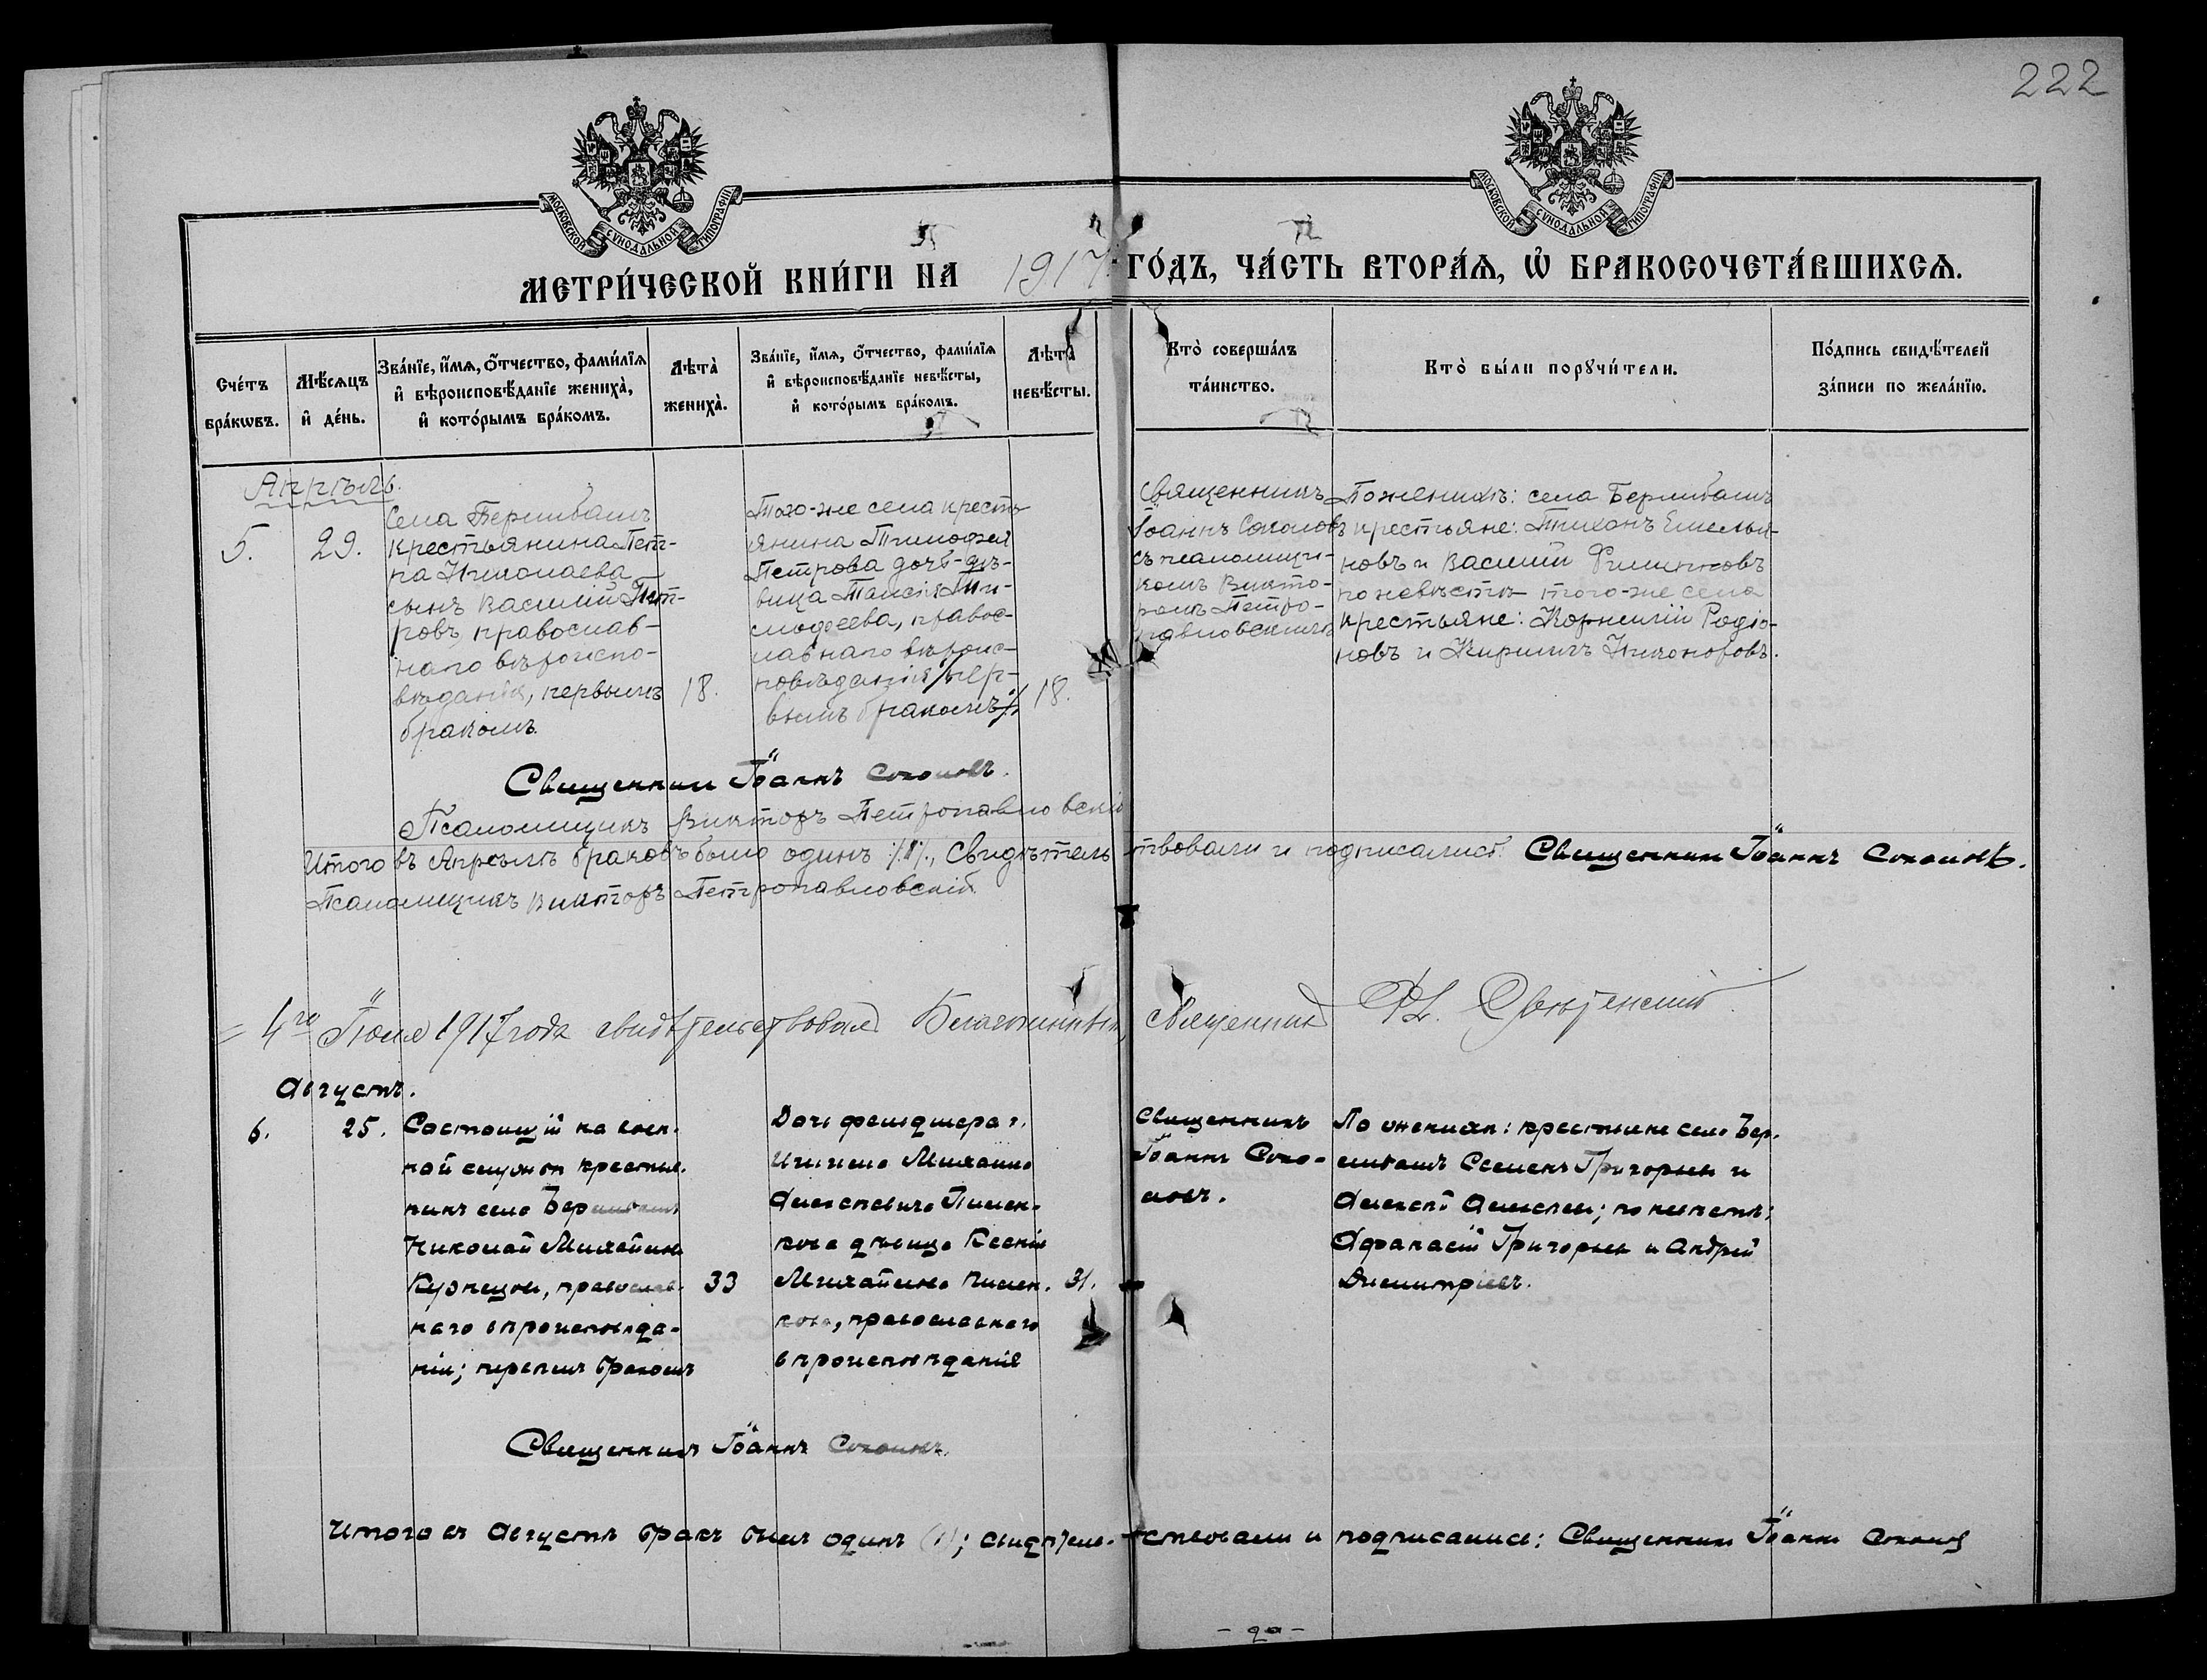 222
МОСКОВСКОЙ СУНОДАЛЬНОЙ ТИПОГРАФІИ
МОСКОВСКОЙ СУНОДАЛЬНОЙ ТИПОГРАФІИ
МЕТРИ́ЧЕСКОЙ КНИ́ГИ НА 1917 ГО́ДЪ, ЧА́СТЬ ВТОРА́Я, Ѡ БРАКОСОЧЕТА́ВШИХСЯ.
Сче́тъ бра́кѡвъ.
Мѣ́сяцъ и҆ де́нь.
Зва́нїе, и҆́мѧ, о҆́тчество, фами́лїѧ
и҆ вѣроисповѣ́данїе жениха̀,
и҆ кото́рымъ бра́комъ.
Лѣта̀ жениха̀.
Зва́нїе, и҆́мѧ, о҆́тчество, фами́лїѧ
и҆ вѣроисповѣ́данїе невѣ́сты,
и҆ кото́рымъ бра́комъ.
Лѣта̀ невѣ́сты.
Кто̀ соверша́лъ
та́инство.
Кто̀ бы́ли порꙋчи́тели.
По́дпись свидѣ́телей
за́писи по жела́нїю.
Апрѣль.
5.
29.
Села
крестьянина Пет-
ра Николаева
сынъ Василій Пет-
ровъ, православ-
наго вѣроиспо-
вѣданія, первымъ
бракомъ.
18.
Того-же села кресть-
янина Тимофея
Петрова дочь-дѣ-
вица Таисія Ти-
мофеева, правос-
лавнаго вѣроис-
повѣданія, пер-
вымъ бракомъ
18.
Священникъ
Іоаннъ Соколовъ
съ псаломщи-
комъ Викто-
ромъ Петро-
павловскимъ
По женихѣ: села
крестьяне: Тихонъ Емелья-
новъ и Василій
по невѣстѣ того-же села
крестьяне: Корнилій Родіо-
новъ и Кириллъ Никоноровъ.
Священникъ Іоаннъ Соколовъ.
Псаломщикъ Викторъ Петропавловскій
Итого въ Апрѣлѣ браковъ было одинъ /1/, Свидѣтельствовали и подписались: Священникъ Іоаннъ Соколовъ.
Псаломщикъ Викторъ Петропавловскій.
4го 1917 года свидѣтельствовалъ Благочинный, Священникъ
Августъ.
6.
25.
Состоящій на воен-
ной службѣ крестья-
нинъ села
Николай Михайловъ
Кузнецовъ, православ-
наго вѣроисповѣда-
нія; первымъ бракомъ
33
Дочь фельдшера г.
Михаила
Алексѣевича Пимен-
кова дѣвица Ксенія
Михайлова Пимен-
кова, православнаго
вѣроисповѣданія
31.
Священникъ
Іоаннъ Соко-
ловъ.
По женихѣ: крестьяне села
Семенъ Григорьевъ и
Алексѣй Алексѣевъ; по невѣстѣ:
Афанасій Григорьевъ и Андрей
Димитріевъ.
Священникъ Іоаннъ Соколовъ.
Итого въ Августѣ бракъ былъ одинъ (1); свидѣтельствовали и подписались: Священникъ Іоаннъ Соколовъ